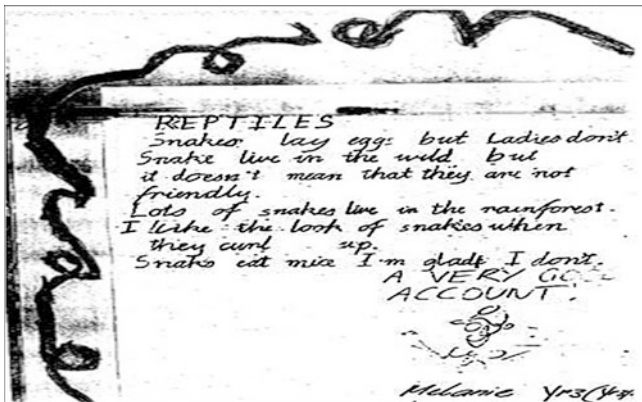 REPTILES
Snakes lay eggs but Ladies don't
Snake live in the wild but
it doesn't mean that they are not
friendly.
Lots of snakes live in the rainforest.
I like the look of snakes when
they curl up.
Snaks eat mice I'm glad I don't.
A VERY
ACCOUNT.
Melanie Yr3